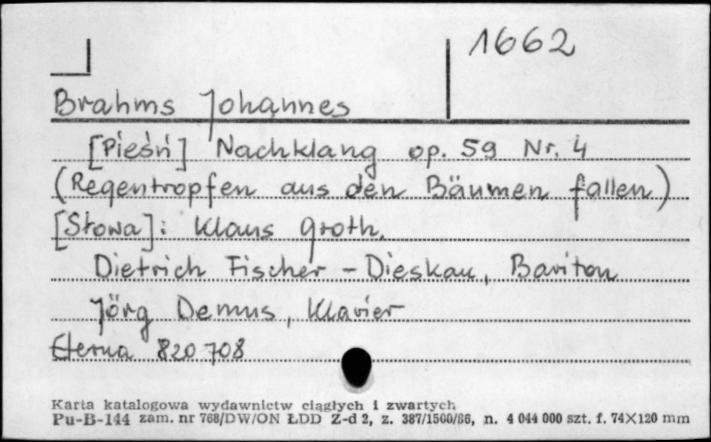 1662
Brahms Johannes
[Pieśń] Nachklang op. 59 Nr. 4
(Regentropfen aus den Bäumen fallen)
[Słowa]: Klaus Groth,
Dietrich Fischer - Dieskau, Bariton
Jörg Demus, Klavier
Eterna 820 708
Karta katalogowa wydawnictw ciągłych i zwartych
Pu-B-144 zam. nr 768/DW/ON ŁDD Z-d 2, z. 387/1500/86, n. 4 044 000 szt. f. 74X120 mm